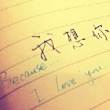 我想你
Because
I Love you